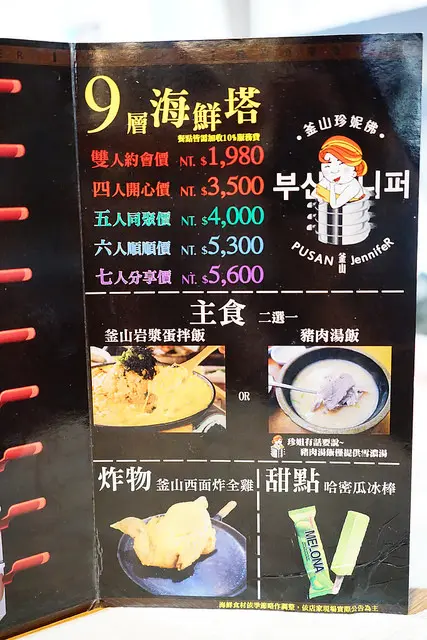 9層海鮮塔
餐點皆需加收10%服務費
雙人約會價 NT. $1,980
四人開心價 NT. $3,500
五人同聚價 NT. $4,000
六人順順價 NT. $5,300
七人分享價 NT. $5,600
釜山珍妮佛
부산 니퍼
PUSAN 釜山 JennifeR
主食 二選一
釜山岩漿蛋拌飯
OR
豬肉湯飯
珍姐有話要說~
豬肉湯飯僅提供雪濃湯
炸物 釜山西面炸全雞
甜點 哈密瓜冰棒
MELONA
海鮮食材依季節略作調整，依店家現場實際公告為主